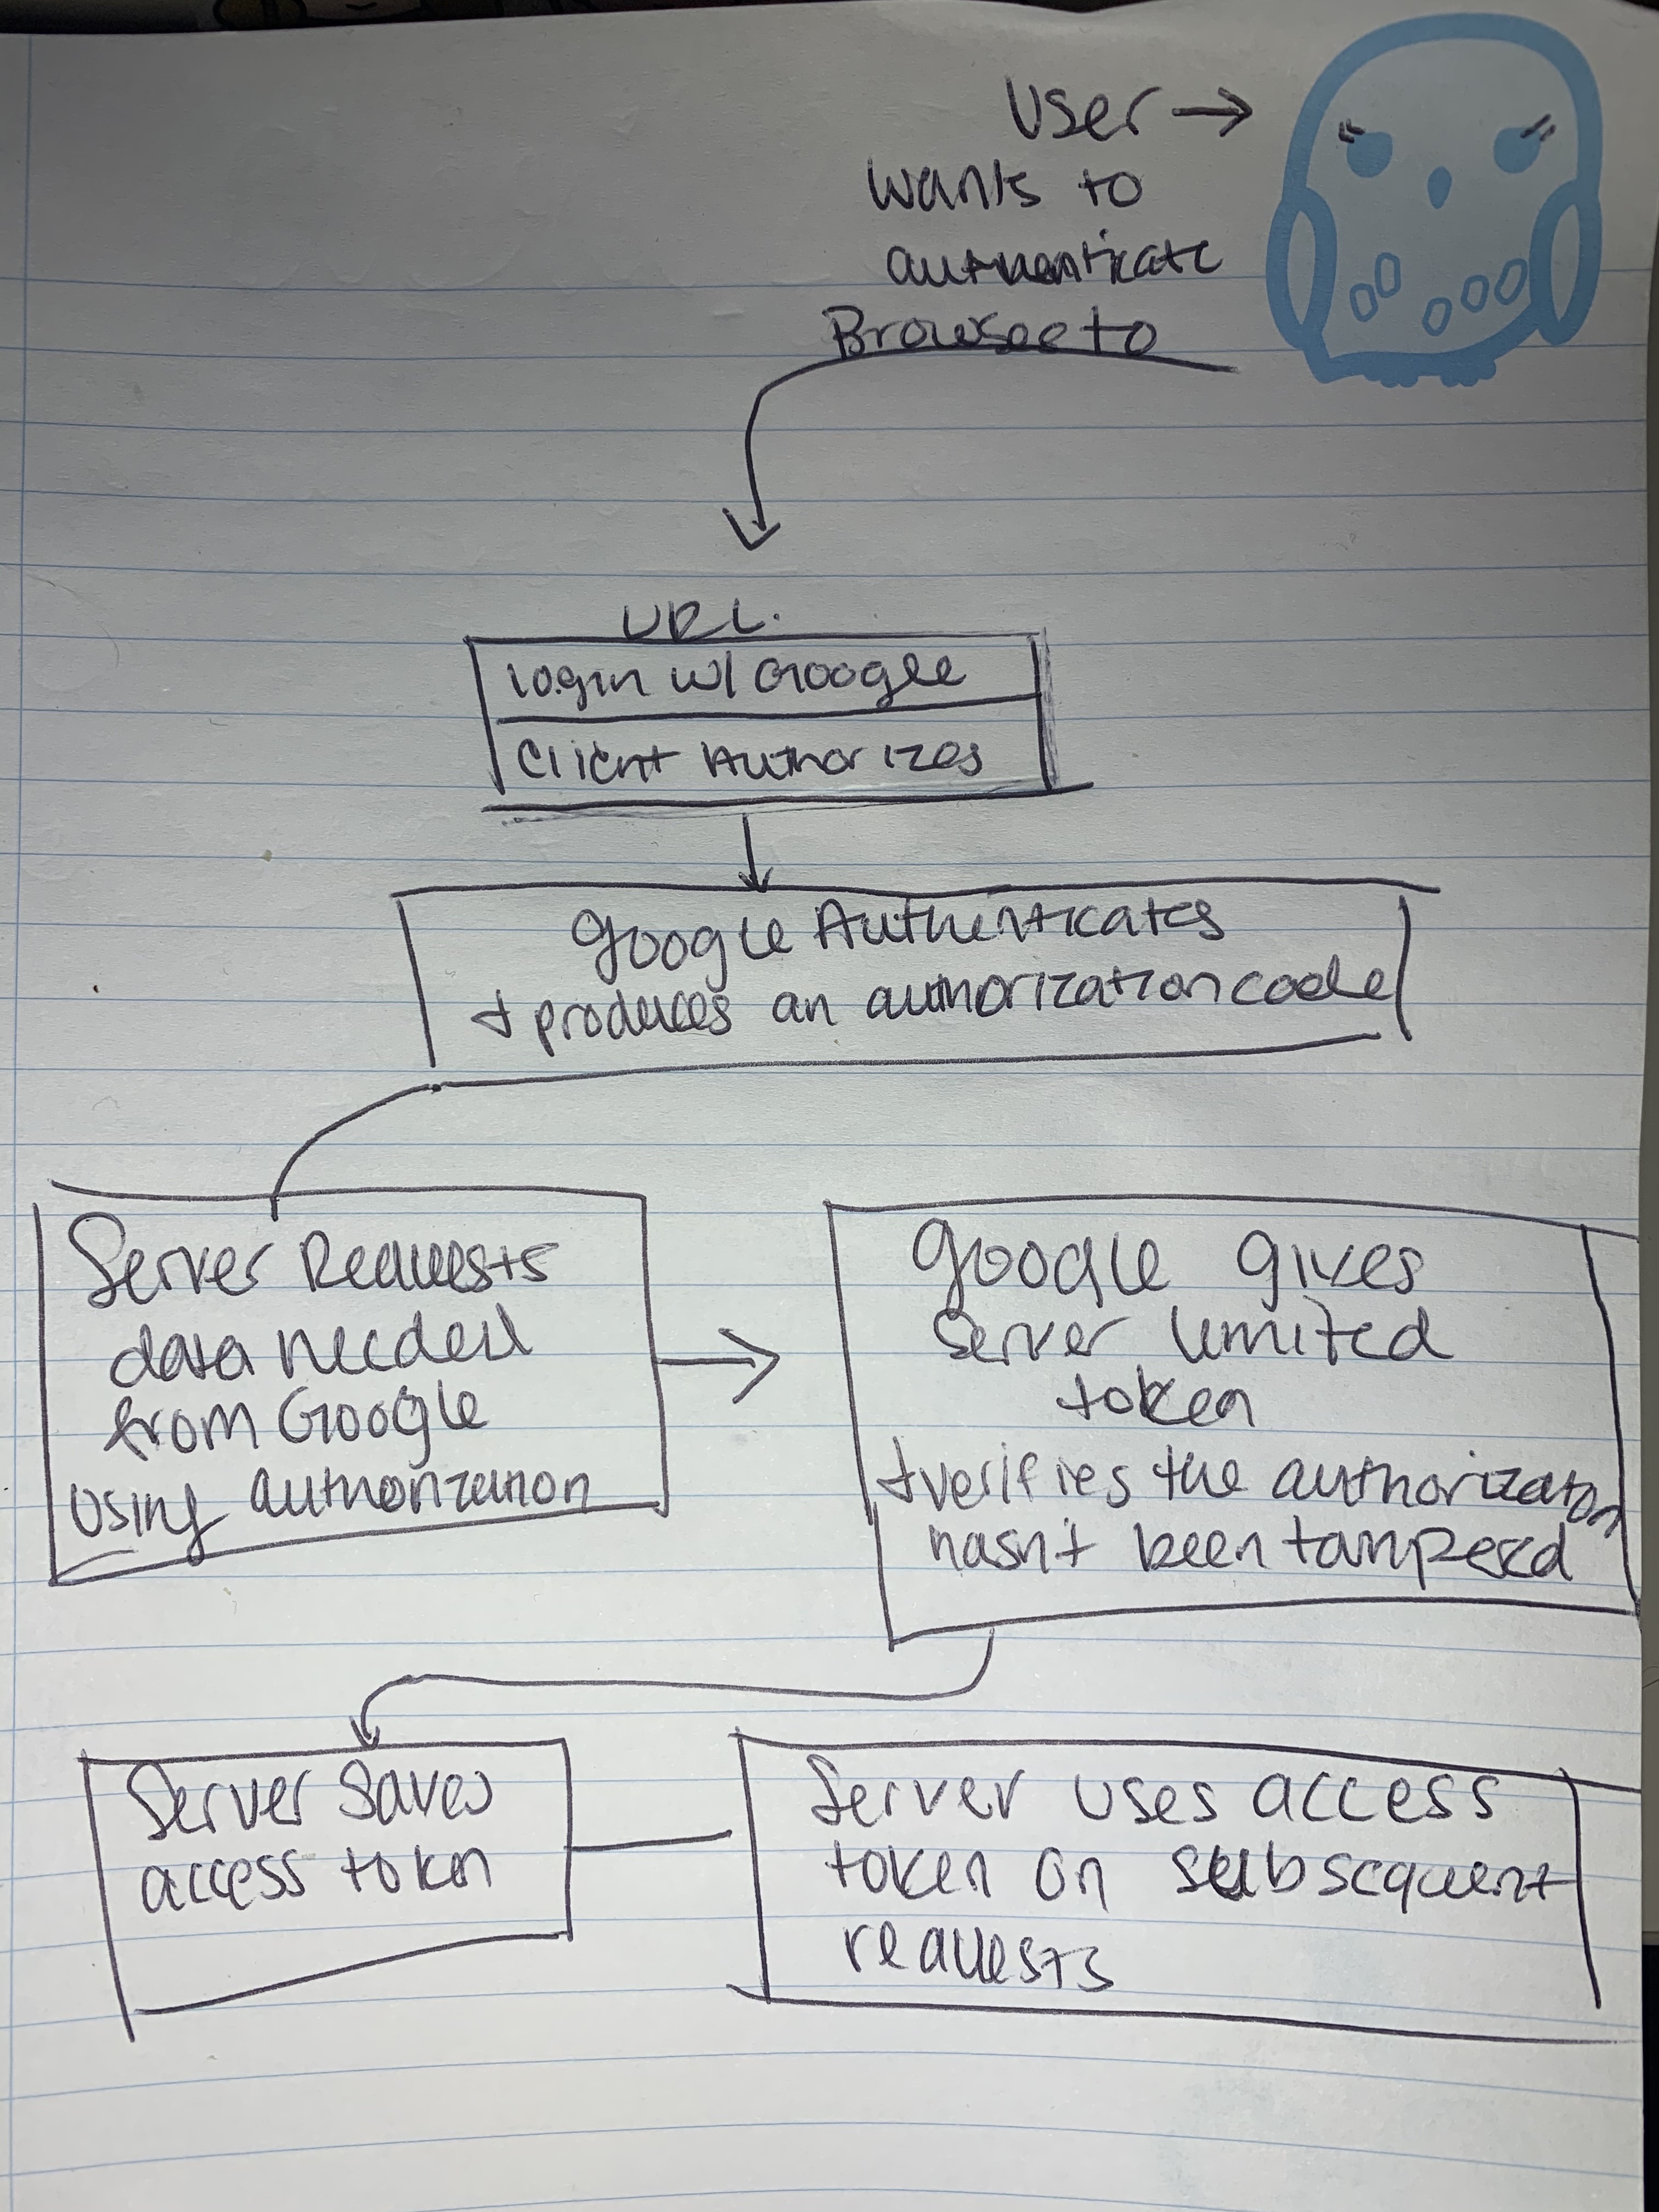 User →
wants to
authenticate
Browse to
URL.
login w/ Google
Client Authorizes
Google Authenticates
+ produces an authorization code
Server Requests
data needed
from Google
using authorization
Google gives
Server limited
token
+ verifies the authorization
hasn't been tampered
Server Saves
access token
Server uses access
token on subsequent
requests